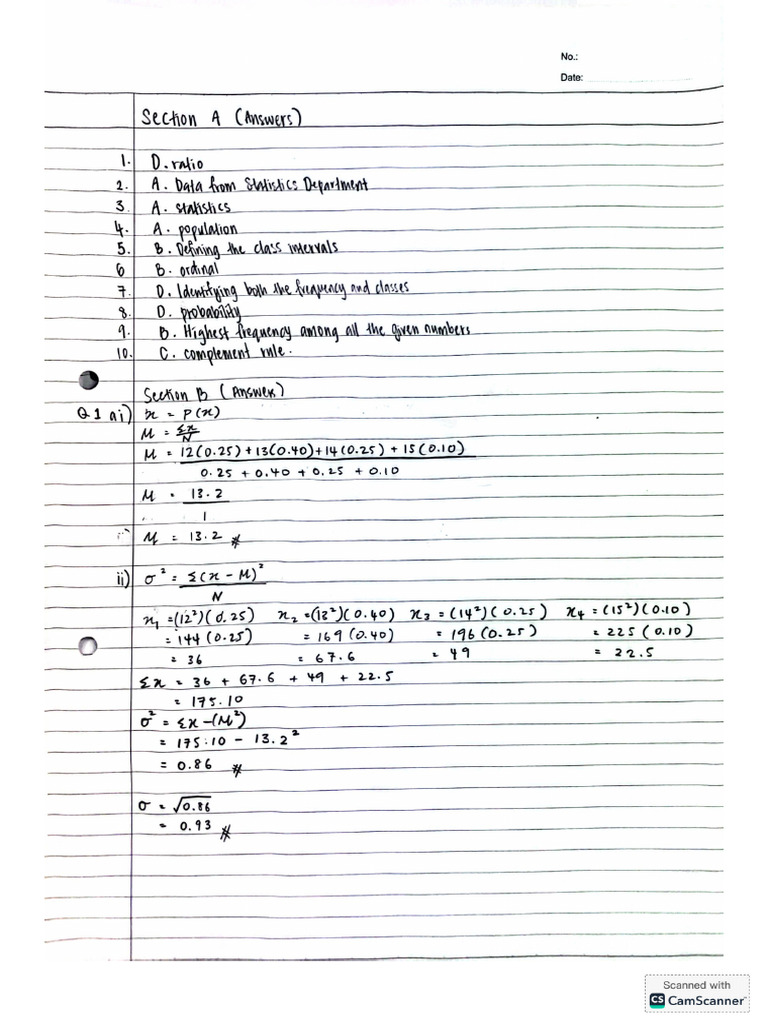 No.:
Date:
Section A (Answers)
1. D. ratio
2. A. Data from Statistics Department
3. A. statistics
4. A. population
5. B. Defining the class intervals
6 B. ordinal
7. D. Identifying both the frequency and classes
8. D. probability
9. B. Highest frequency among all the given numbers
10. C. complement rule.
Section B (Answers)
Q1 ai) x = P(x)
M = Σx/N
M = 12(0.25)+13(0.40)+14(0.25)+15(0.10)
0.25 + 0.40 + 0.25 + 0.10
M = 13.2
1
M = 13.2 #
ii) σ² = Σ(x - M)²
N
x₁ =(12²)(0.25) x₂ =(13²)(0.40) x₃ = (14²)(0.25) x₄ = (15²)(0.10)
= 144 (0.25) = 169 (0.40) = 196 (0.25) = 225 (0.10)
= 36 = 67.6 = 49 = 22.5
Σx = 36 + 67.6 + 49 + 22.5
= 175.10
σ² = Σx-(M²)
= 175.10 - 13.2²
= 0.86 #
σ = √0.86
= 0.93 #
Scanned with
CS CamScanner